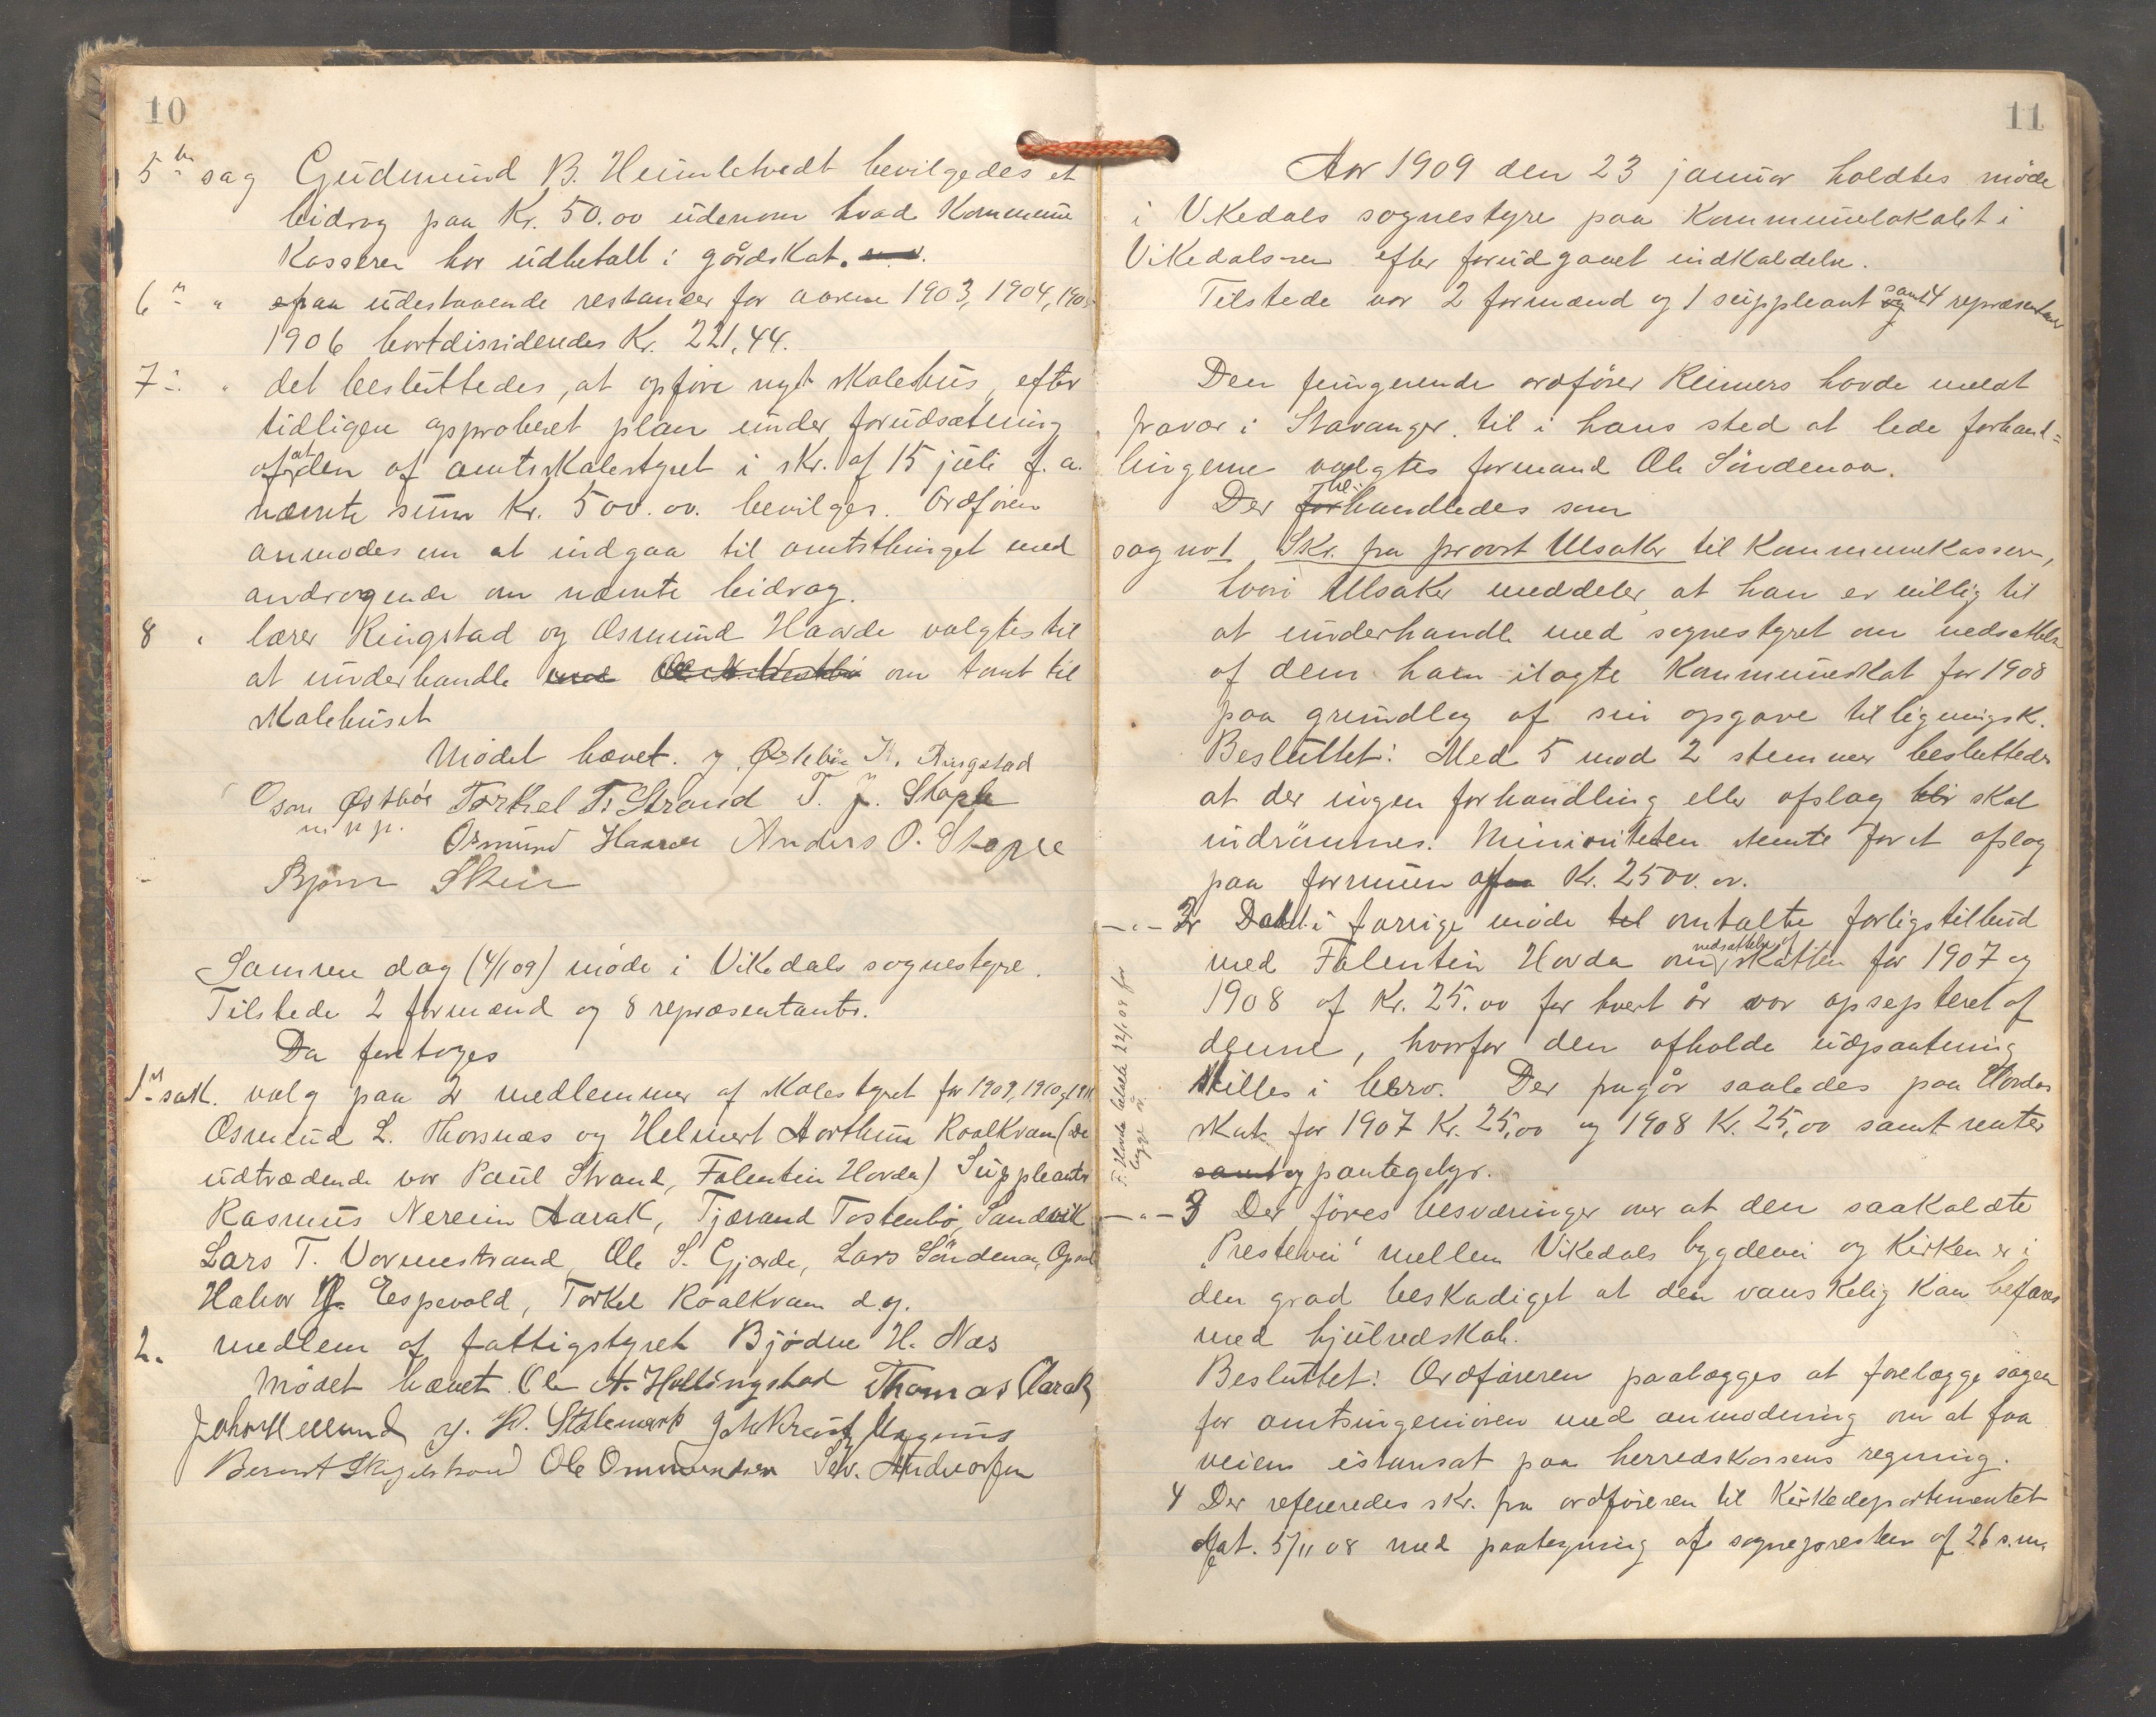 10
5te sag Gudmund B. Heimletvedt bevilgedes et
bidrag paa Kr. 50.00 udenom hvad Kommune
Kasseren har udbetalt i gårdskat.
6te " paa udestaaende restancer for aarene 1903, 1904, 1905
1906 bortdividendes Kr. 221,44.
7de " det besluttedes, at opføre nyt skolehus, efter
tidligen approberet plan under forudsætning
af at den af amtsskolestyret i skr. af 15 juli f. a.
nævnte sum Kr. 500.00. bevilges. Ordføren
anmodes om at indgaa til amtsthinget med
andragende om nævnte bidrag.
8 " lærer Ringstad og Osmund Haarde valgtes til
at underhandle med om tomt til
skolehuset
Mødet hævet. Ringstad
Østbøe Torkel T. Strand T. J. Stople
m. p. p. Osmund Haarde Anders O. Stople
Bjørn Skeie
Samme dag (4/1 09) møde i Vikedals sognestyre.
Tilstede 2 formænd og 8 repræsentanter.
Da foretoges
1ste sak. valg paa 2 medlemmer af skolestyret for 1909, 1910 og 1911
Osmund L. Thorsnæs og Helmert Aarthun Roalkvam (De
udtrædende var Paul Strand, Falentin Hovda) Suppleanter
Rasmus Nereim Aarak, Tjærand Tostenbø, Sandvik
Lars T. Vormestrand, Ole S. Gjerde, Lars Söndenaa, Opsal
Halvor Espevold, Torkel Roalkvam d.y.
2. medlem af fattigstyret Bjödne H. Næs
Mødet hævet. Ole A. Hallingstad Thomas Aarak
John Mæland Y. H. Stølemark Magnus
Bernt Skogelstrand Ole Ommundsen Sev. Andvorsen
11
Aar 1909 den 23 januar holdtes møde
i Vikedals sognestyre paa Kommunelokalet i
Vikedalsøren efter forudgaaet indkaldelse.
Tilstede var 2 formænd og 1 suppleant og samt 4 repræsentanter
Den fungerende ordfører Reimers havde meldt
fravær i Stavanger. til i hans sted at lede forhand=
lingerne valgtes formand Ole Söndenaa.
Der for behandledes som
sag no 1 Skr. fra provst Ulsaker til Kommunekassern,
hvori Ulsaker meddeler at han er villig til
at underhandle med sognestyret om nedsættelse
af dem ham ilagte Kommuneskat for 1908
paa grundlag af sin opgave til ligningsk.
Besluttet: Med 5 mod 2 stemmer besluttedes
at der ingen forhandling eller afslag blir skal
indrömmes. Minioriteten stemte for et afslag
paa formuen af Kr. 2500.00.
— " — 2 Det i forrige møde til omtalte forligstilbud
med Falentin Hovda om nedsættelse af skatten for 1907 og
1908 af Kr. 25.00 for hvert år var opsepteret af
denne, hvorfor den afholdte udpantning
stilles i bero. Der fragår saaledes paa Hovdas
skat for 1907 Kr. 25,00 og 1908 Kr. 25,00 samt renter
samt og pantegebyr.
F. Hovda betalte 22/1 09 for
begge år.
— " — 3 Der föres besværinger over at den saakaldte
"Prestevei" mellem Vikedals bygdevei og Kirken er i
den grad beskadiget at den vanskelig kan befares
med hjulredskab.
Besluttet: Ordføreren paalægges at forelægge sagen
for amtsingeniøren med anmodning om at faa
veien istansat paa herredskassens regning.
4 Der refereredes skr. fra ordføreren til Kirkedepartementet
dat. 5/11 08 med paategning af sognepresten af 26 s.m.